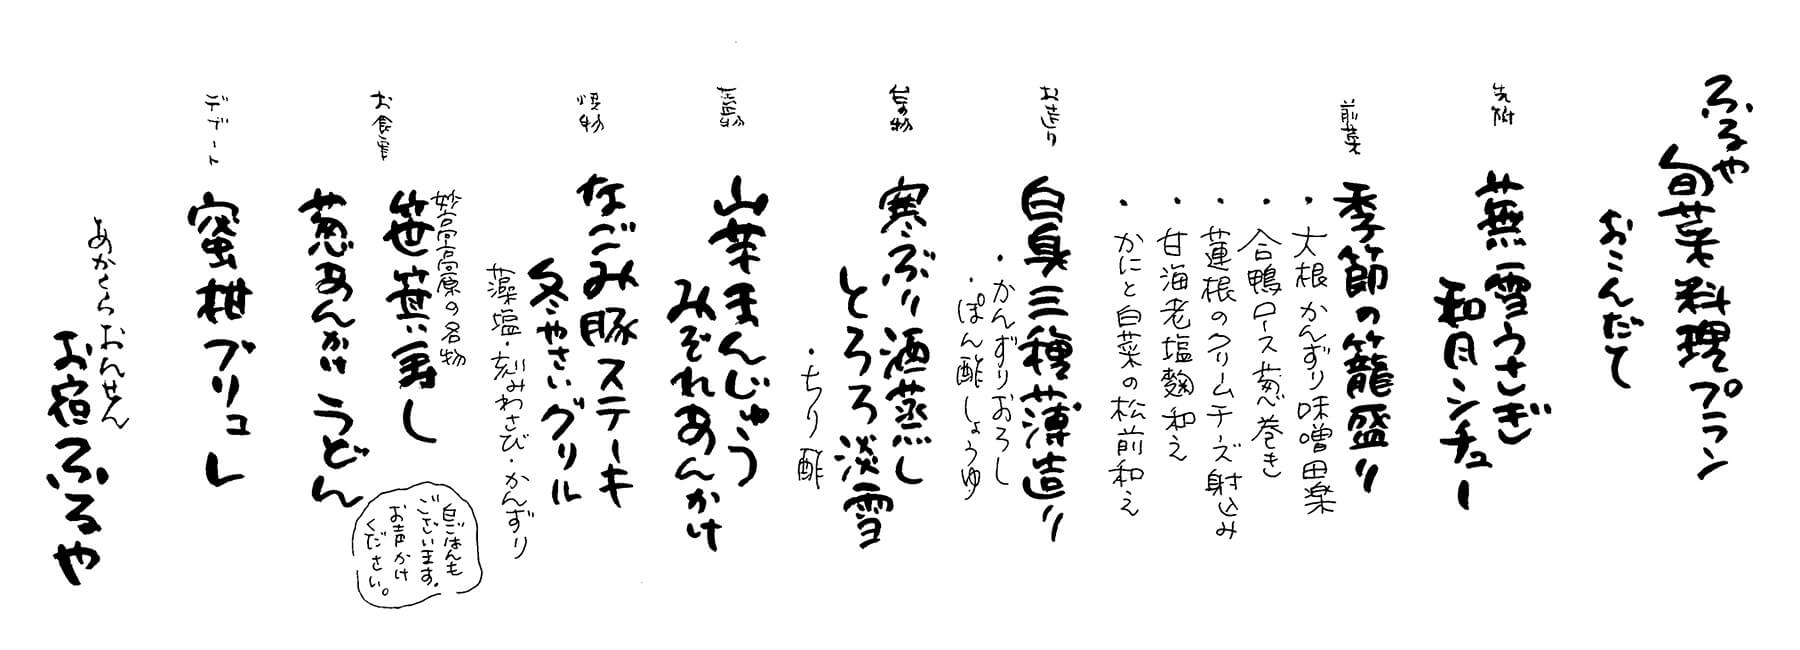 ふるや
旬菜料理プラン
おこんだて
先附
蕪雪うさぎ
和風シチュー
前菜
季節の籠盛り
・大根かんずり味噌田楽
・合鴨ロース葱巻き
・蓮根のクリームチーズ射込み
・甘海老塩麹和え
・かにと白菜の松前和え
お造り
白身三種薄造り
・かんずりおろし
・ぽん酢しょうゆ
台の物
寒ぶり酒蒸し
とろろ淡雪
・ちり酢
蒸物
山芋まんじゅう
みぞれあんかけ
焼物
なごみ豚ステーキ
冬やさいグリル
藻塩・刻みわさび・かんずり
お食事
妙高高原の名物
笹寿し
葱あんかけうどん
白ごはんも
ございます。
お声かけ
ください。
デザート
蜜柑ブリュレ
あかくらおんせん
お宿ふるや